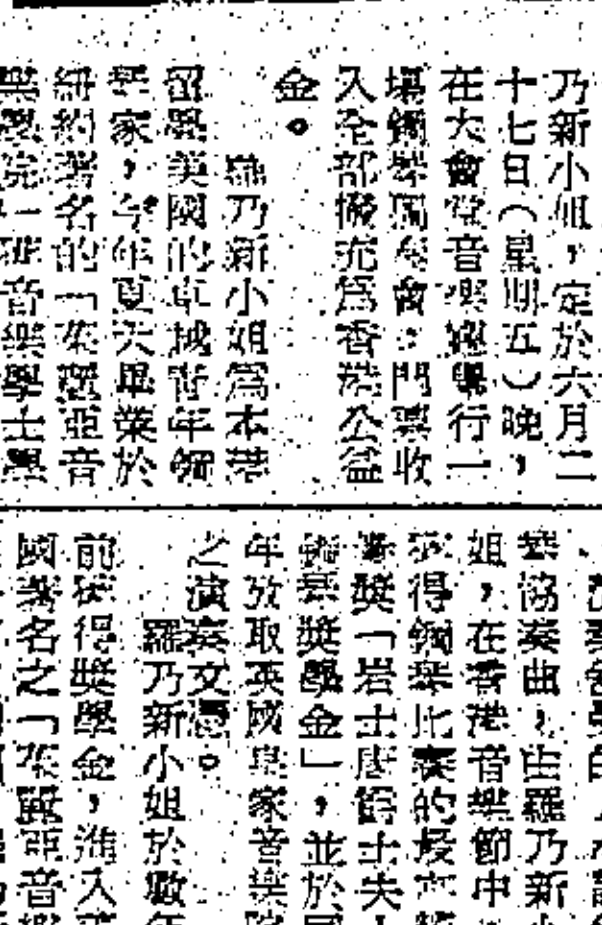 乃新小姐，定於六月二
十七日（星期五）晚，
在大會堂音樂廳舉行一
場鋼琴獨奏會，門票收
入全部撥充為香港公益
金。
羅乃新小姐為本港
留學美國的卓越青年鋼
琴家，今年夏天畢業於
紐約著名的「茱麗亞音
樂學院」 音樂學士學
協奏曲，由羅乃新小
姐，在香港音樂節中，
獲得鋼琴比賽的最高
獎「岩士唐爵士夫人
鋼琴獎學金」，並於同
年攷取英國皇家音樂院
之演奏文憑。
羅乃新小姐於數年
前獲得獎學金，進入美
國著名之「茱麗亞音樂